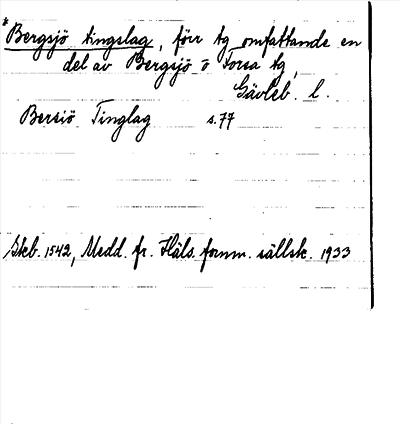 *Bergsjö tingslag, förr tg omfattande en
del av Bergsjö o Forsa tg,
Gävleb. l.
Bersiö Tinglag s. 77
Skb. 1542, Medd. fr. Häls. fornm. sällsk. 1933